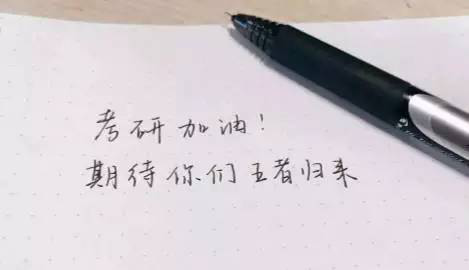 考研加油!
期待你们王者归来